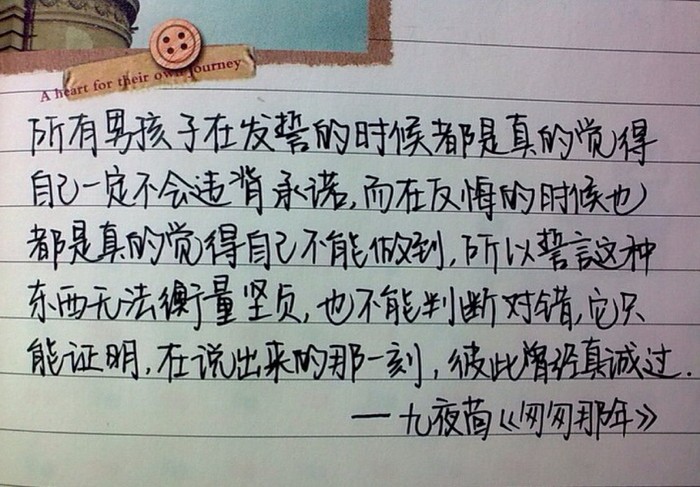 A heart for their own journey
所有男孩子在发誓的时候都是真的觉得
自己一定不会违背承诺,而在反悔的时候也
都是真的觉得自己不能做到,所以誓言这种
东西无法衡量坚贞,也不能判断对错,它只
能证明,在说出来的那一刻,彼此曾经真诚过.
——九夜茴《匆匆那年》